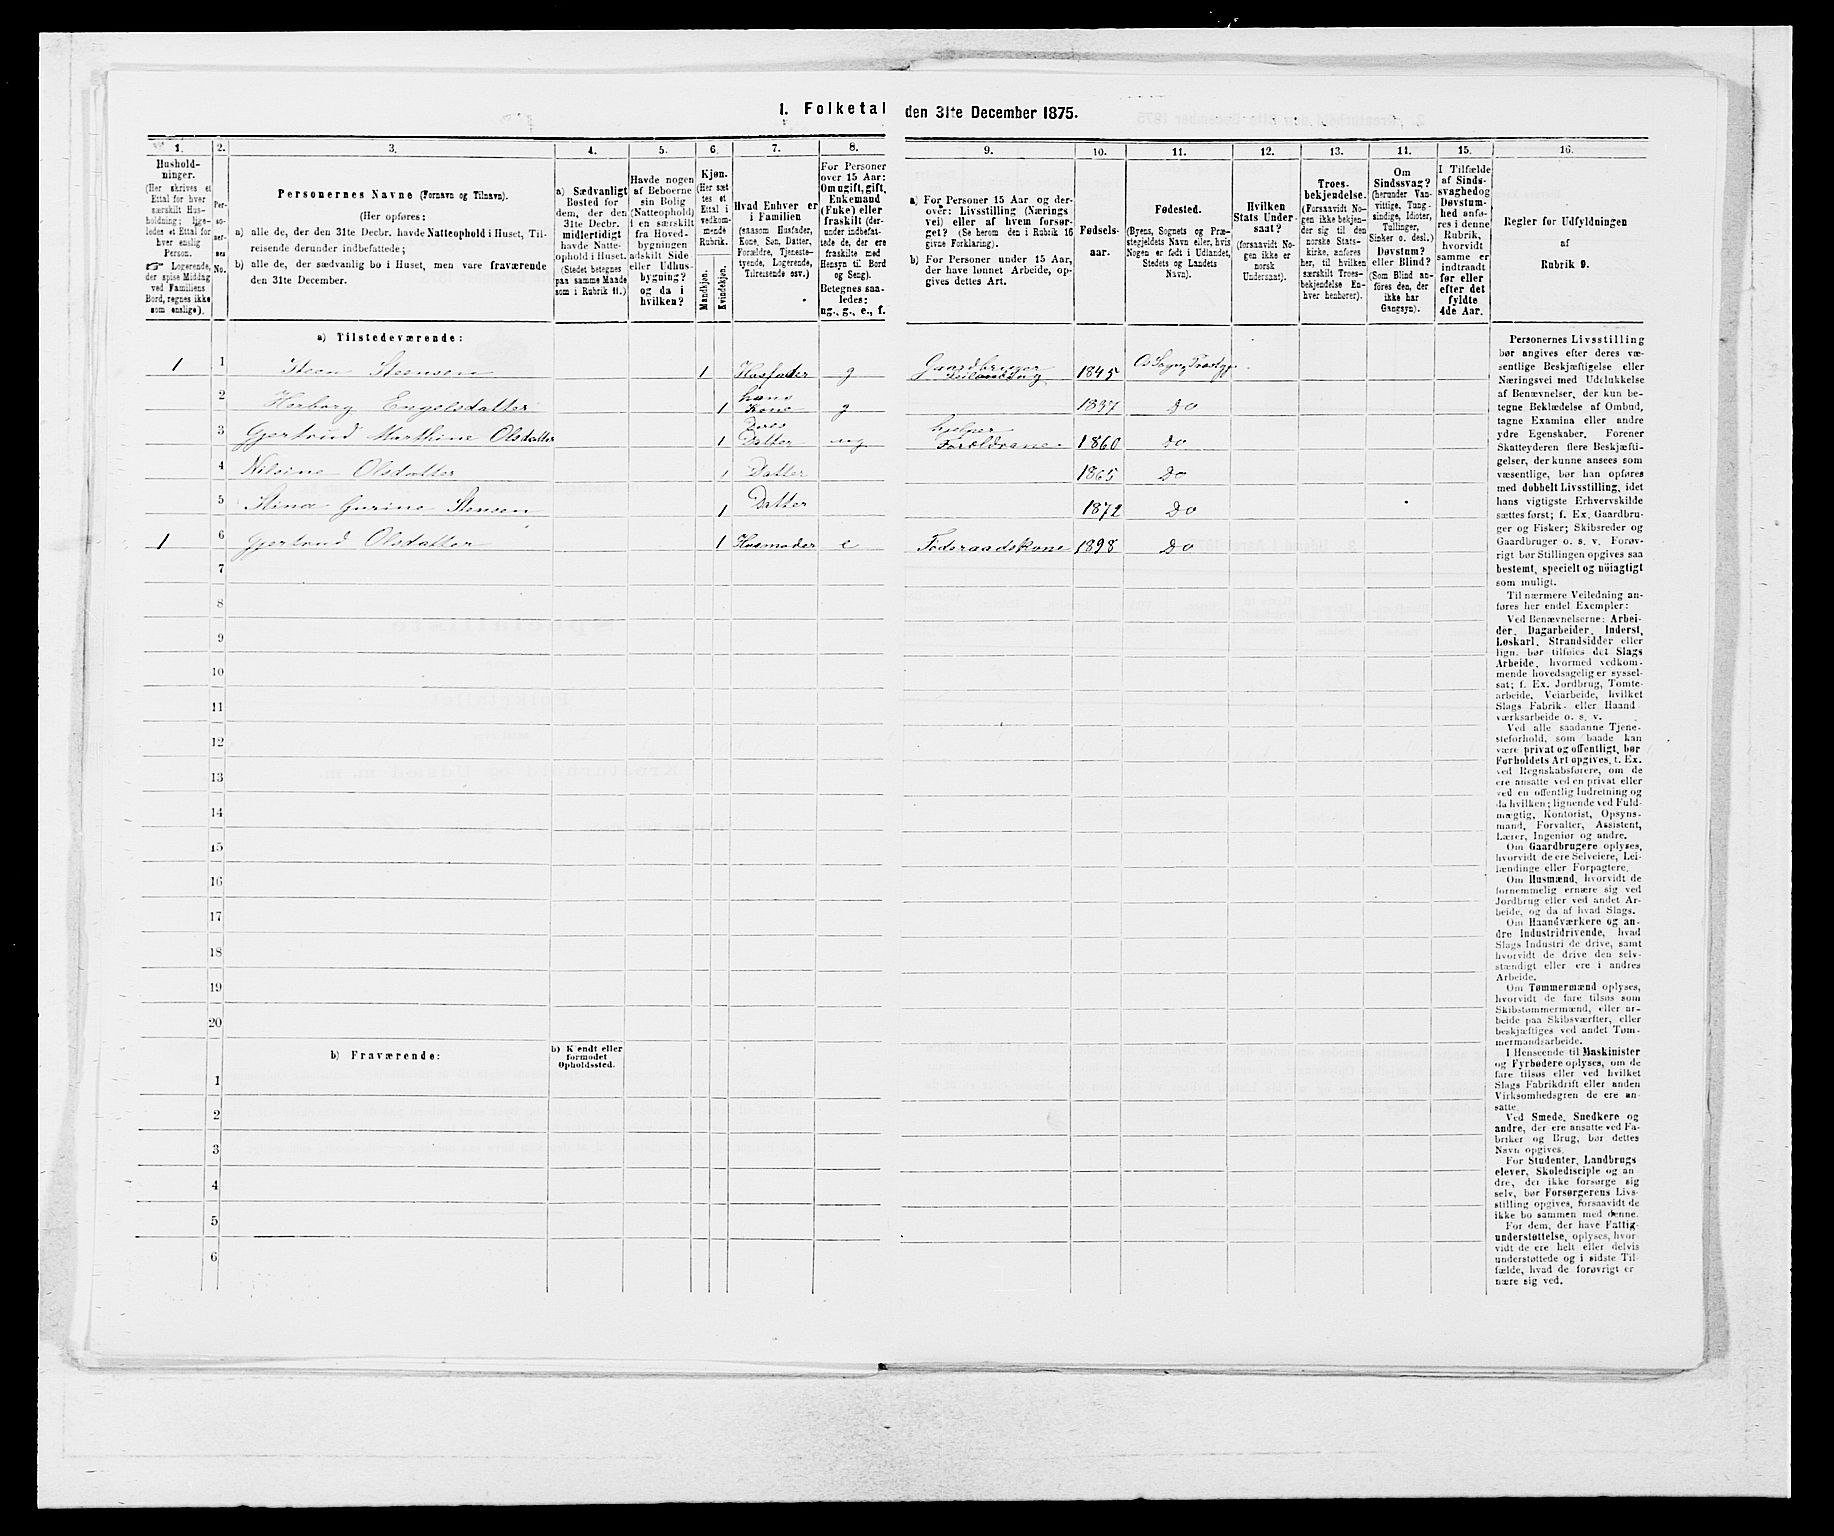 1. Folketal den 31te December 1875.
1. 2. 3. 4. 5. 6. 7. 8. 9. 10. 11. 12. 13. 14. 15. 16.
Hushold-
ninger.
(Her skrives et
Ettal for hver
særskilt Hus-
holdning; lige-
ledes et Ettal for
hver enslig
Person.
☞ Logerende,
der spise Middag
ved Familiens
Bord, regnes ikke
som enslige).
Per-
so-
ner-
nes
No.
Personernes Navne (Fornavn og Tilnavn).
(Her opføres:
a) alle de, der den 31te Decbr. havde Natteophold i Huset, Til-
reisende derunder indbefattede;
b) alle de, der sædvanlig bo i Huset, men vare fraværende
den 31te December.
a) Sædvanligt
Bosted for
dem, der den
31te Decbr.
midlertidigt
havde Natte-
ophold i Huset.
(Stedet betegnes
paa samme Maade
som i Rubrik 11.)
Havde nogen
af Beboerne
sin Bolig
(Natteophold)
i en særskilt
fra Hoved-
bygningen
adskilt Side
eller Udhus-
bygning?
og da i
hvilken?
Kjøn.
(Her sæt
tes et
Ettal i
vedkom-
mende
Rubrik.
Mandkjøn.
Kvindekjøn.
Hvad Enhver er
i Familien
(saasom Husfader,
Kone, Søn, Datter,
Forældre, Tjeneste-
tyende, Logerende,
Tilreisende osv.)
For Personer
over 15 Aar:
Om ugift, gift,
Enkemand
(Enke) eller
fraskilt (der-
under indbefat-
tede de, der ere
fraskilte med
Hensyn til Bord
og Seng).
Betegnes saa-
ledes:
ug., g., e., f.
a) For Personer 15 Aar og der-
over: Livsstilling (Nærings
vei) eller af hvem forsør-
get? (Se herom den i Rubrik 16
givne Forklaring).
b) For Personer under 15 Aar,
der have lønnet Arbeide, op-
gives dettes Art.
Fødsels-
aar.
Fødested.
(Byens, Sognets og Præ-
stegjeldets Navn eller, hvis
Nogen er født i Udlandet,
Stedets og Landets
Navn).
Hvilken
Stats Under-
saat?
(forsaavidt No-
gen ikke er
norsk
Undersaat).
Troes-
bekjendelse.
(Forsaavidt No-
gen ikke bekjen-
der sig til den
norske Stats-
kirke, anføres
her, til hvilken
særskilt Troes-
bekjendelse En-
hver henhører).
Om
Sindssvag?
(herunder Van-
vittige, Tung-
sindige, Idioter,
Tullinger,
Sinker o. desl.)
Døvstum?
eller Blind?
(Som Blind an-
føres den, der
ikke har
Gangsyn).
I Tilfælde
af Sinds-
svaghed og
Døvstum-
hed anfø-
res i denne
Rubrik,
hvorvidt
samme er
indtraadt
før eller
efter det
fyldte
4de Aar.
Regler for Udfyldningen
af
Rubrik 9.
a) Tilstedeværende:
1 1 Steen Steensen 1 Husfader g Gaardbruger 1845 Os Sogn
2 Herborg Engelsdatter 1 hans Kone g 1837 Do
3 Gjertrud Marthine Olsdatter 1 Datter ug hjelper Foreldrene 1860 Do
4 Nilsine Olsdatter 1 Datter 1865 Do
5 Stina Gurine Stensen 1 Datter 1872 Do
1 6 Gjertrud Olsdatter 1 Husmoder e Føderaadskone 1898 Do
7
8
9
10
11
12
13
14
15
16
17
18
19
20
b) Fraværende:
b) Kjendt eller
formodet
Opholdssted.
1
2
3
4
5
6
Personernes Livsstilling
bør angives efter deres væ-
sentlige Beskjæftigelse eller
Næringsvei med Udelukkelse
af Benævnelser, der kun be-
tegne Beklædelse af Ombud,
tagne Examina eller andre
ydre Egenskaber. Forener
Skatteyderen flere Beskjæfti-
gelser, der kunne ansees som
væsentlige, bør han opføres
med dobbelt Livsstilling, idet
hans vigtigste Erhvervskilde
sættes først; f. Ex. Gaardbru-
ger og Fisker; Skibsreder og
Gaardbruger o. s. v. Forøv-
rigt bør Stillingen opgives saa
bestemt, specielt og nøiagtigt
som muligt.
Til nærmere Veiledning an-
føres her endel Exempler:
Ved Benævnelserne: Arbei-
der, Dagarbeider, Inderst,
Løskarl, Strandsidder eller
lign. bør tilføies det Slags
Arbeide, hvormed vedkom-
mende hovedsagelig er syssel-
sat; f. Ex. Jordbrug, Tomte-
arbeide, Veiarbeide, hvilket
Slags Fabrik- eller Haand
værksarbeide o. s. v.
Ved alle saadanne Tjene-
steforhold, som baade kan
være privat og offentligt, bør
Forholdets Art opgives, t. Ex.
ved Regnskabsførere, om de
ere ansatte ved en privat eller
ved en offentlig Indretning og
da hvilken; lignende ved Fuld-
mægtig, Kontorist, Opsyns-
mand, Forvalter, Assistent,
Lærer, Ingeniør og andre.
Om Gaardbrugere oplyses,
hvorvidt de ere Selveiere, Lei-
lændinge eller Forpagtere.
Om Husmænd, hvorvidt de
fornemmelig ernære sig ved
Jordbrug eller ved andet Ar-
beide, og da af hvad Slags.
Om Haandværkere og an-
dre Industridrivende, hvad
Slags Industri de drive, samt
hvorvidt de drive den selv-
stændigt eller ere i andres
Arbeide.
Om Tømmermænd oplyses,
hvorvidt de fare tilsøs som
Skibstømmermænd, eller ar-
beide paa Skibsværfter, eller
beskjæftiges ved andet Tøm-
mermandsarbeide.
I Henseende til Maskinister
og Fyrbødere oplyses, om de
fare tilsøs eller ved hvilket
Slags Fabrikdrift eller anden
Virksomhedsgren de ere an-
satte.
Ved Smede, Snedkere og
andre, der ere ansatte ved Fa-
briker og Brug, bør dettes
Navn opgives.
For Studenter, Landbrugs
elever, Skoledisciple og an
dre, der ikke forsørge sig
selv, bør Forsørgerens Livs-
stilling opgives, forsaavidt de
ikke bo sammen med denne.
For dem, der have Fattig-
understøttelse, oplyses, hvor-
vidt de ere helt eller delvis
understøttede og i sidste Til-
fælde, hvad de forøvrigt er
nære sig ved.